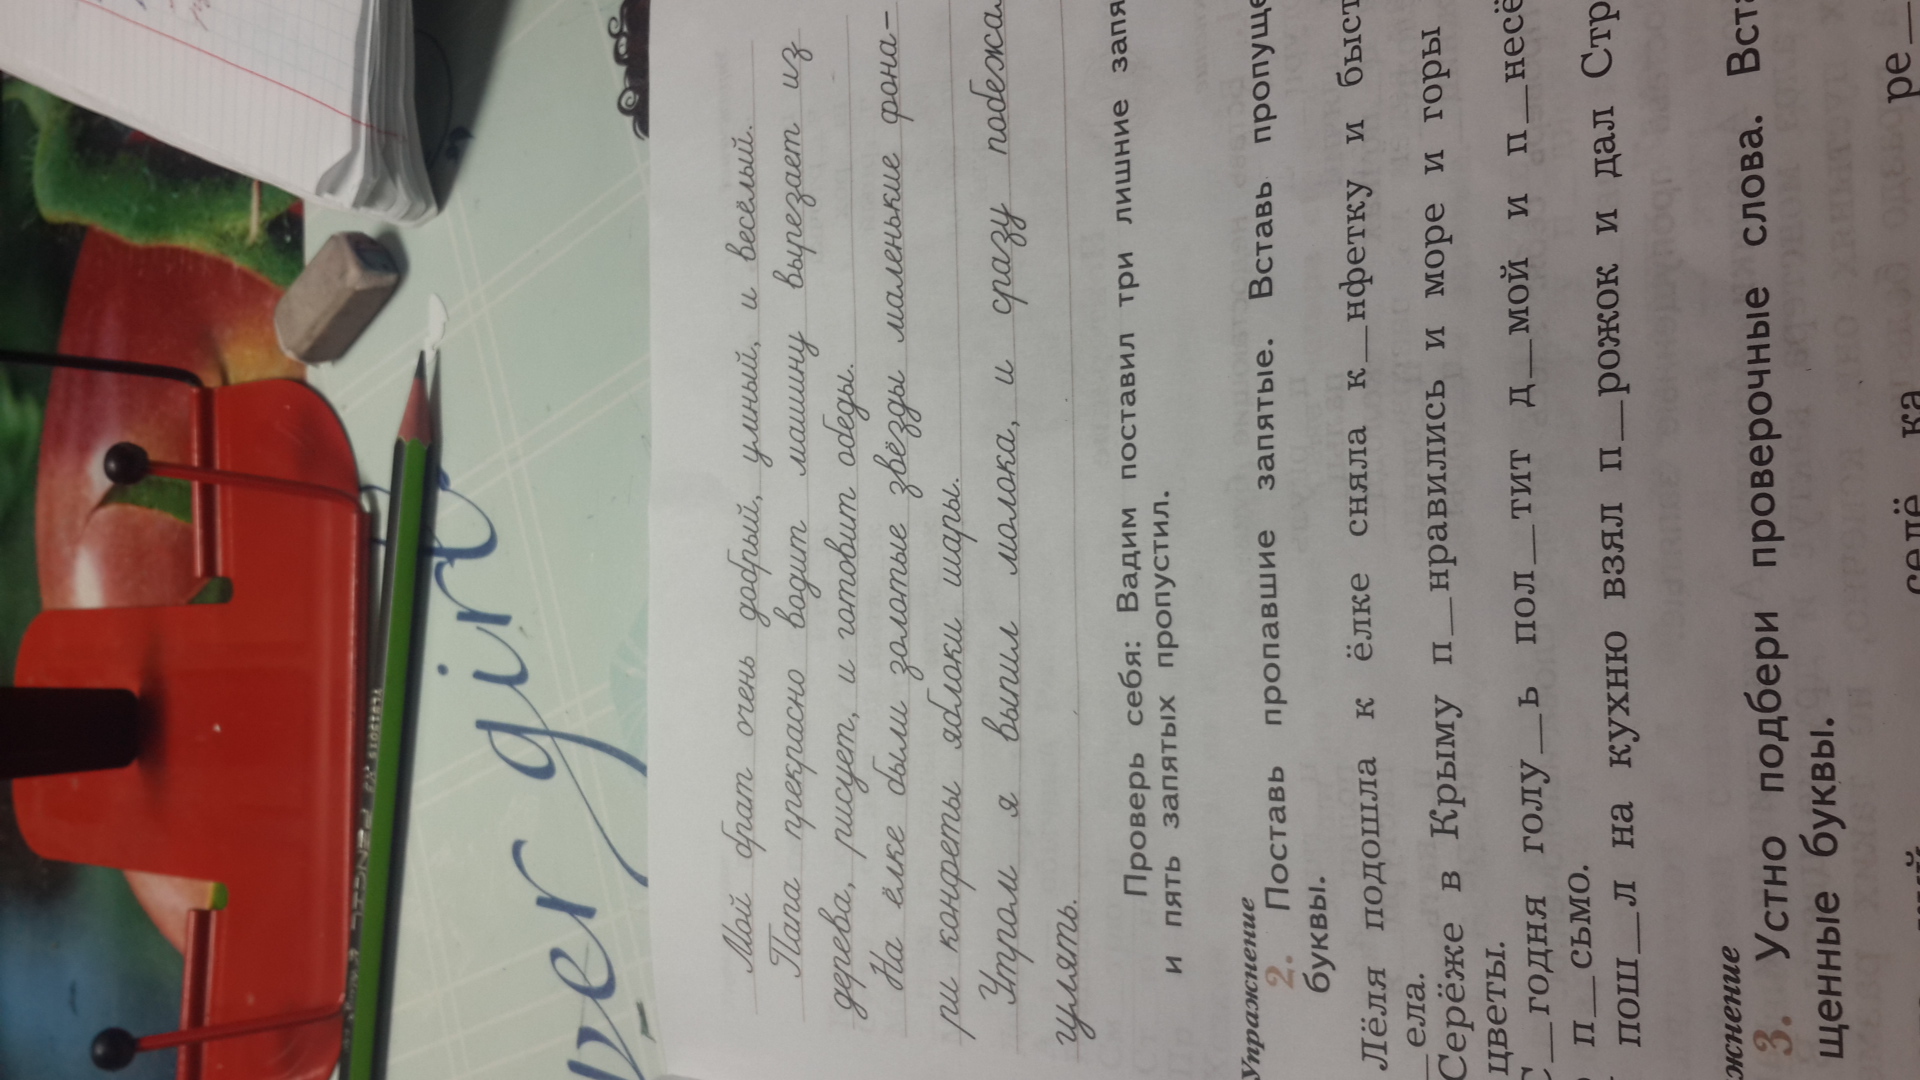 Мой брат очень добрый, умный, и весёлый.
Папа прекрасно водит машину вырезает из
дерева, рисует, и готовит обеды.
На ёлке были золотые звёзды маленькие фона-
ри конфеты яблоки шары.
Утром я выпил молока, и сразу побежа
гулять.
Проверь себя: Вадим поставил три лишние запя
и пять запятых пропустил.
Упражнение
2. Поставь пропавшие запятые. Вставь пропуще
буквы.
Лёля подошла к ёлке сняла к__нфетку и быст
__ела.
Серёже в Крыму п__нравились и море и горы
цветы.
С__годня голу__ь пол__тит д__мой и п__несё
п__сьмо.
пош__л на кухню взял п__рожок и дал Стр
жнение
3. Устно подбери проверочные слова. Вста
щенные буквы.
ре__
girl